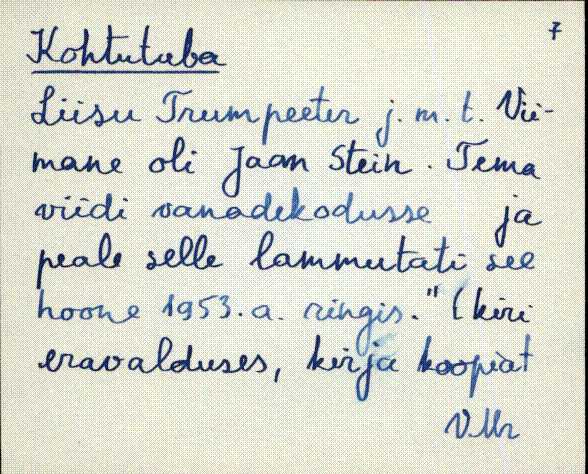 7
Kohtutuba
Liisu Trumpeeter j. m. t. Vii-
mane oli Jaan Stein. Tema
viidi vanadekodusse ja
peale selle lammutati see
hoone 1953. a. ringis." (kiri
eravalduses, kirja koopiat
VMr